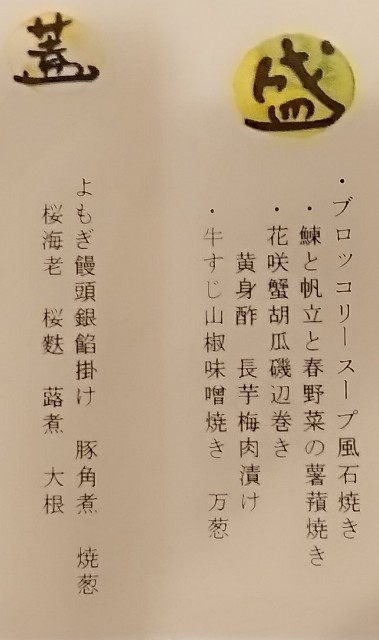 盛
・ブロッコリースープ風石焼き
・鰊と帆立と春野菜の薯蕷焼き
・花咲蟹胡瓜磯辺巻き
黄身酢 長芋梅肉漬け
・牛すじ山椒味噌焼き 万葱
蓋
よもぎ饅頭銀餡掛け 豚角煮 焼葱
桜海老 桜麩 蕗煮 大根